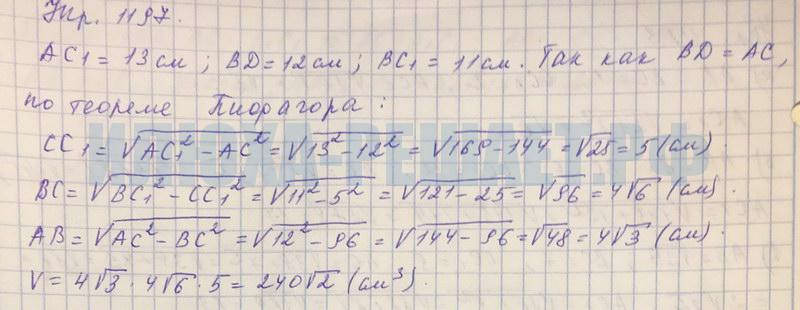 Упр. 1197.
AC₁ = 13 см ; BD = 12 см ; BC₁ = 11 см. Так как BD = AC,
по теореме Пифагора :
CC₁ = √(AC₁² − AC²) = √(13² − 12²) = √(169 − 144) = √25 = 5 (см) .
BC = √(BC₁² − CC₁²) = √(11² − 5²) = √(121 − 25) = √96 = 4√6 (см) .
AB = √(AC² − BC²) = √(12² − 96) = √(144 − 96) = √48 = 4√3 (см) .
V = 4√3 · 4√6 · 5 = 240√2 (см³) .